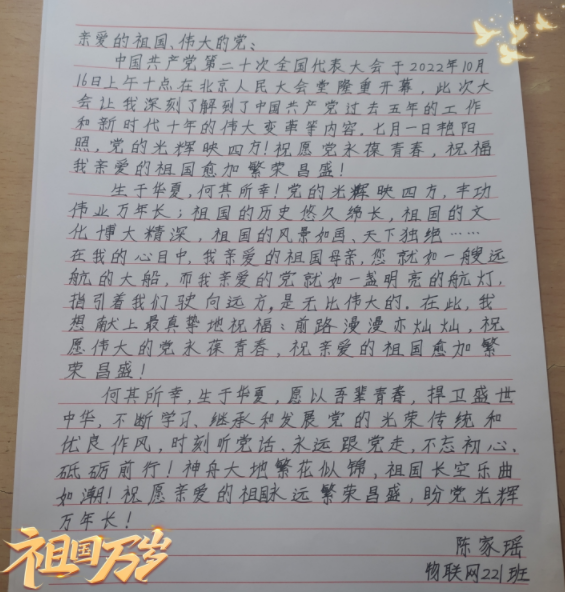 亲爱的祖国、伟大的党:
中国共产党第二十次全国代表大会于2022年10月
16日上午十点在北京人民大会堂隆重开幕,此次大
会让我深刻了解到了中国共产党过去五年的工作
和新时代十年的伟大变革等内容,七月一日艳阳
照,党的光辉映四方!祝愿党永葆青春,祝福
我亲爱的祖国愈加繁荣昌盛!
生于华夏,何其所幸!党的光辉映四方,丰功
伟业万年长;祖国的历史悠久绵长,祖国的文
化博大精深,祖国的风景如画、天下独绝……
在我的心目中,我亲爱的祖国母亲,您就如一艘远
航的大船,而我亲爱的党就如一盏明亮的航灯,
指引着我们驶向远方,是无比伟大的。在此,我
想献上最真挚地祝福:前路漫漫亦灿灿,祝
愿伟大的党永葆青春,祝亲爱的祖国愈加繁
荣昌盛!
何其所幸,生于华夏,愿以吾辈青春,捍卫盛世
中华,不断学习、继承和发展党的光荣传统和
优良作风,时刻听党话、永远跟党走,不忘初心、
砥砺前行!神舟大地繁花似锦,祖国长空乐曲
如潮!祝愿亲爱的祖国永远繁荣昌盛,盼党光辉
万年长!
陈家瑶
物联网221班
祖国万岁